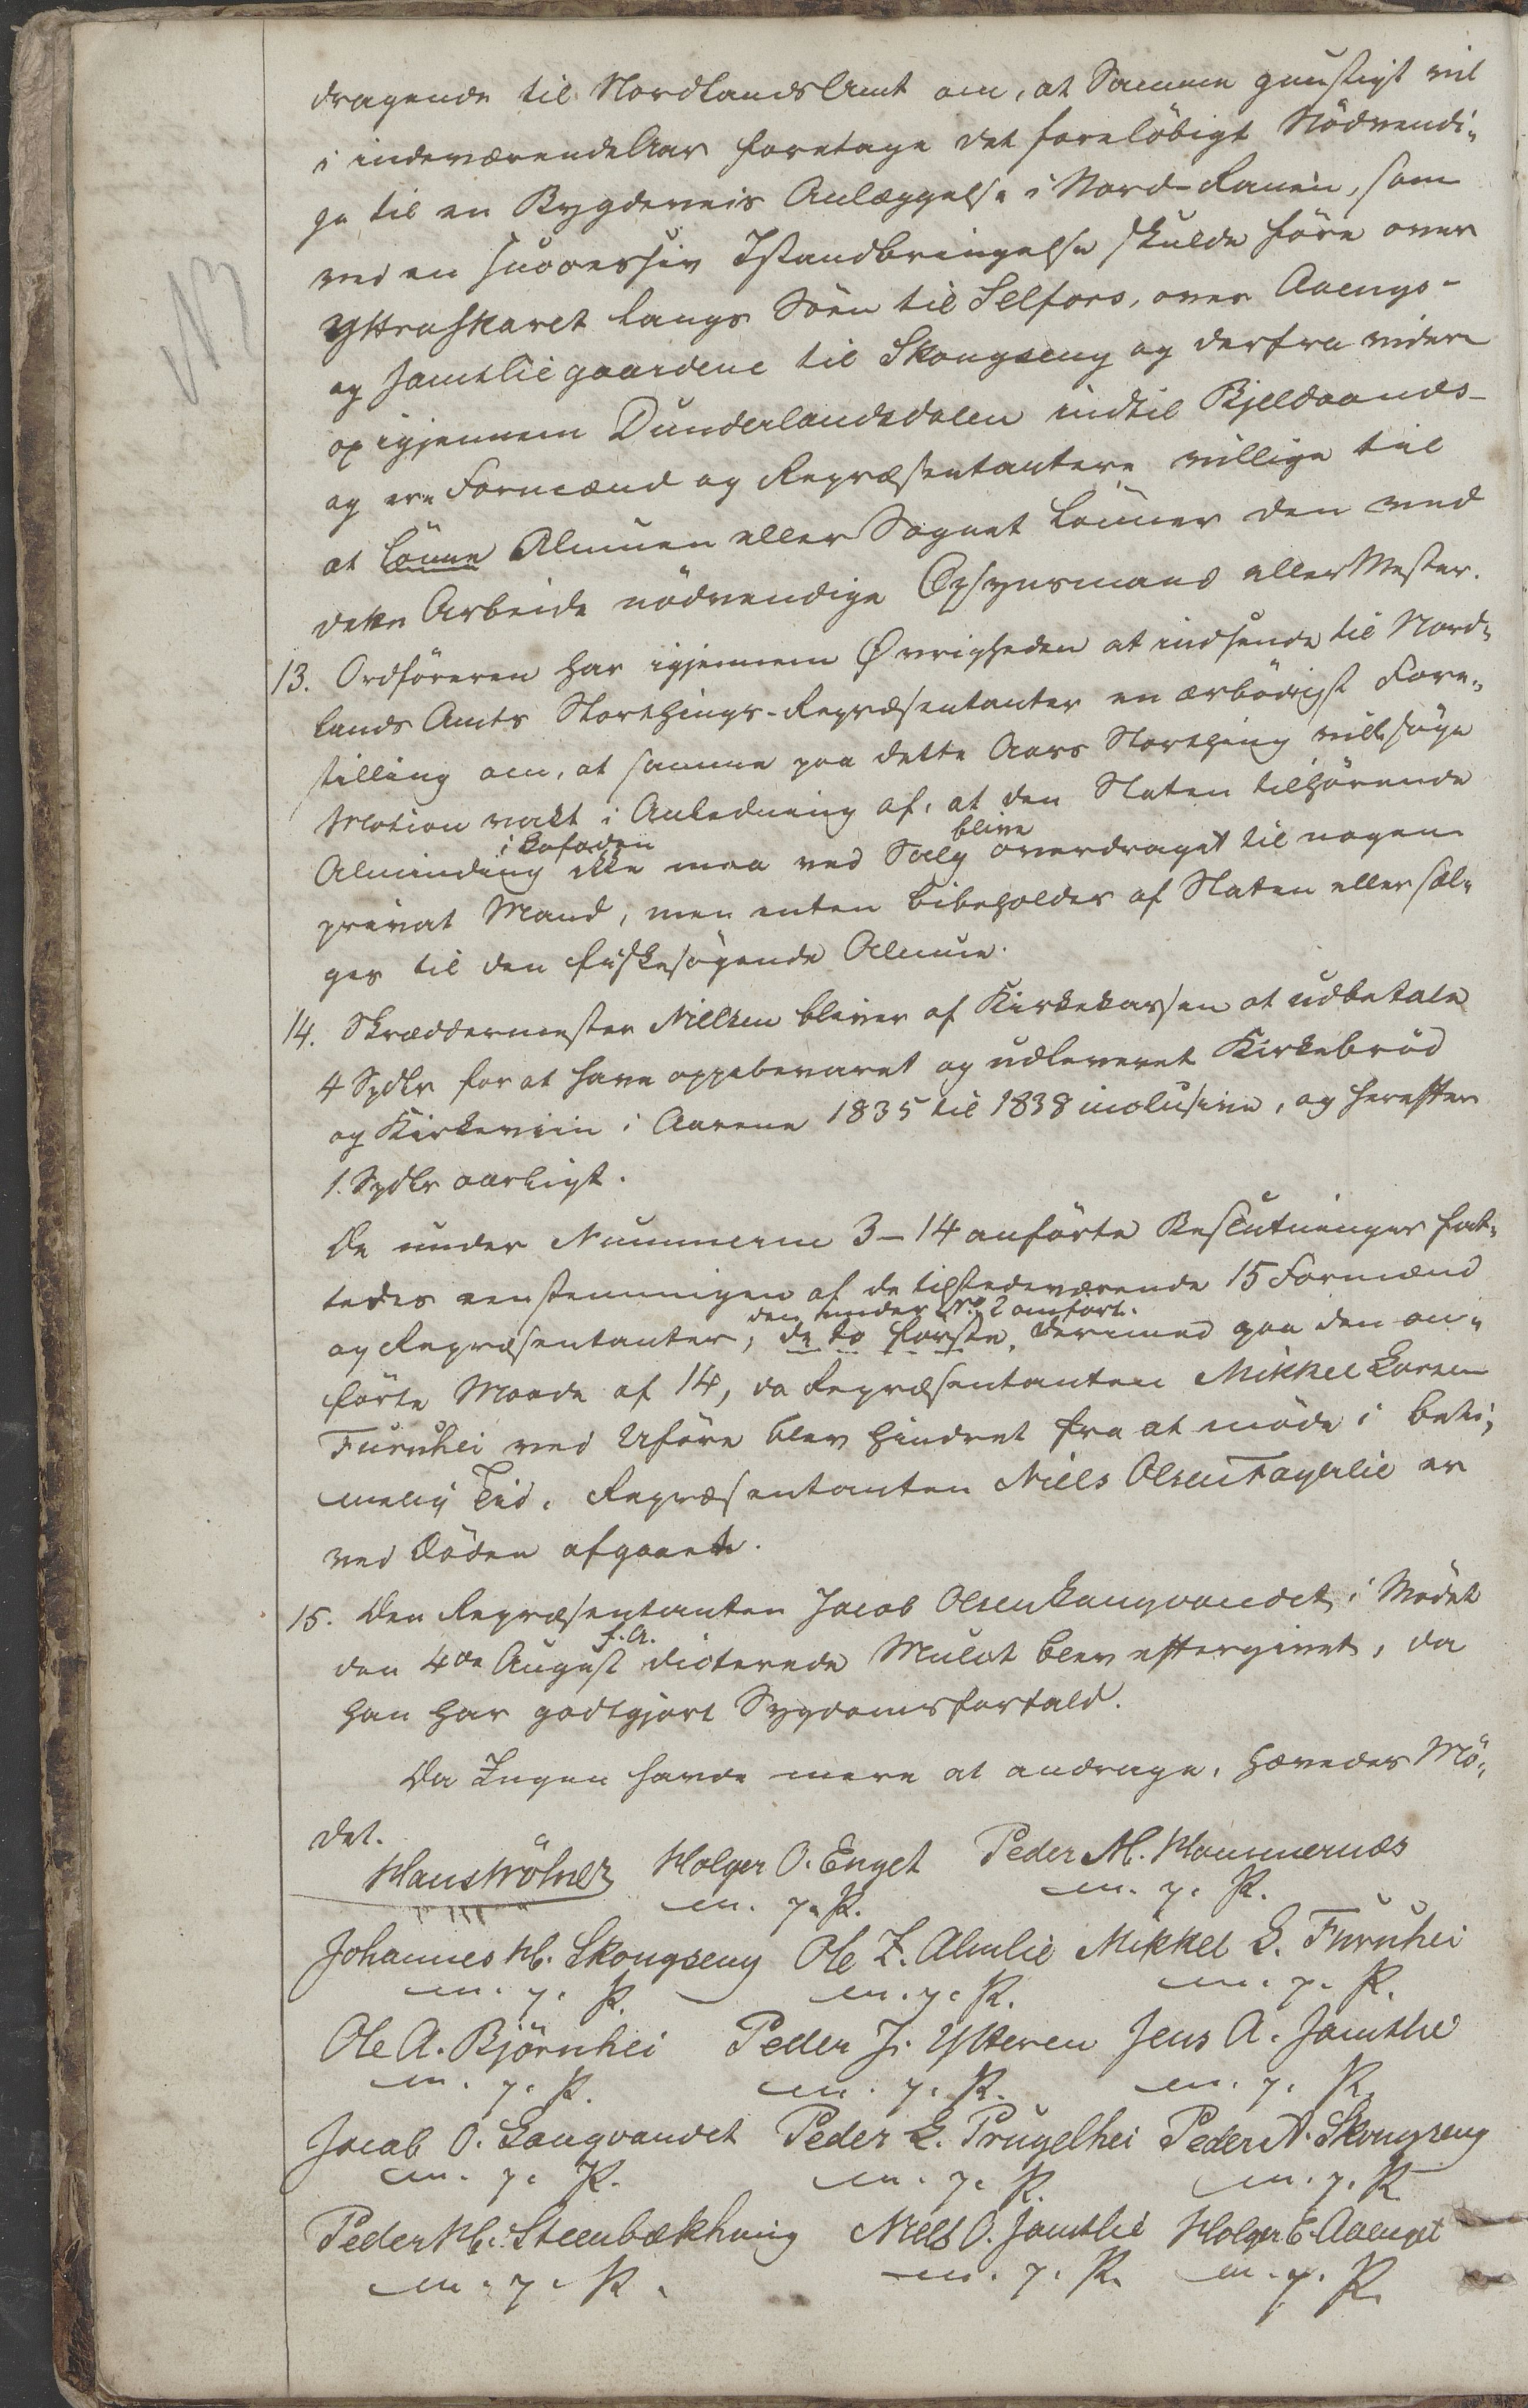 dragende til Nordlands Amt om, at Samme gunstigt vil
i indeværende Aar foretage det foreløbigt Nödvendi-
ge til en Bygdeveis Anlæggelse i Nord-Ranen, som
ved en successiv Istandbringelse skulde före over
Ytteraskaret langs Söen til Selfors, over Aaengs-
og Jamtliegaardene til Skongseng og derfra videre
op igjennem Dunderlandsdalen indtil Bjeldaanæs-
og ere Formænd og Repræsentantere villige til
at lönne Almuen eller Sognet lönner den ved
dette Arbeide nödvendige Opsynsmand eller Mester.
13. Ordföreren har igjennem Øvrigheden at indsende til Nord-
lands Amts Storthings-Repræsentanter en ærbödigst Fore-
stilling om, at samme paa dette Aars Storthing vill söge
Motion vakt i Anledning af, at den Staten tilhörende
i Lofoden blive
Alminding ikke maa ved Salg overdraget til nogen
privat Mand, men enten bibeholdes af Staten eller sæl-
ges til den fiskesögende Almue.
14. Skræddermester Nielsen bliver af Kirkekassen at udbetale
4 Spdlr for at have oppebevaret og udleveret Kirkebröd
og Kirkeviin i Aarene 1835 til 1838 inclusive, og herefter
1. Spdlr aarligt.
De under Nummerne 3-14 anförte Beslutninger fat-
tedes eenstemmigen af de tilstedeværende 15 Formænd
den under No 2 anfört.
og Repræsentanter, de to første, dermed paa den an-
förte Maade af 14, da Repræsentanten Mikkel Larsen
Furuhei ved Uföre blev hindret fra at möde i beti-
melig Tid. Repræsentanten Niels Olsen Fagerlie er
ved Döden afgaaet.
15. Den Repræsentanten Jacob Olsen Langvandet i Mödet
f. A.
den 4de August dicterede Mulct blev eftergivet, da
han har godtgjort Sygdomsforfald.
Da Ingen havde mere at andrage, hævedes Mö-
det.
Hans Holger O. Enget Peder M. Hammernæs
m. p. P. m. p. P.
Johannes H. Skongseng Ole Z. Almlie Mikkel L. Furuhei
m. p. P. m. p. P. m. p. P.
Ole A. Björnhei Peder J. Ytteren Jens A. Jamtlie
m. p. P. m. p. P. m. p. P.
Jacob O. Langvandet Peder L. Prugelhei Peder A. Skongseng
m. p. P. m. p. P. m. p. P.
Peder H. Steenbækhaug Niels O. Jamtlie Holger E. Aaenget
m. p. P. m. p. P. m. p. P.